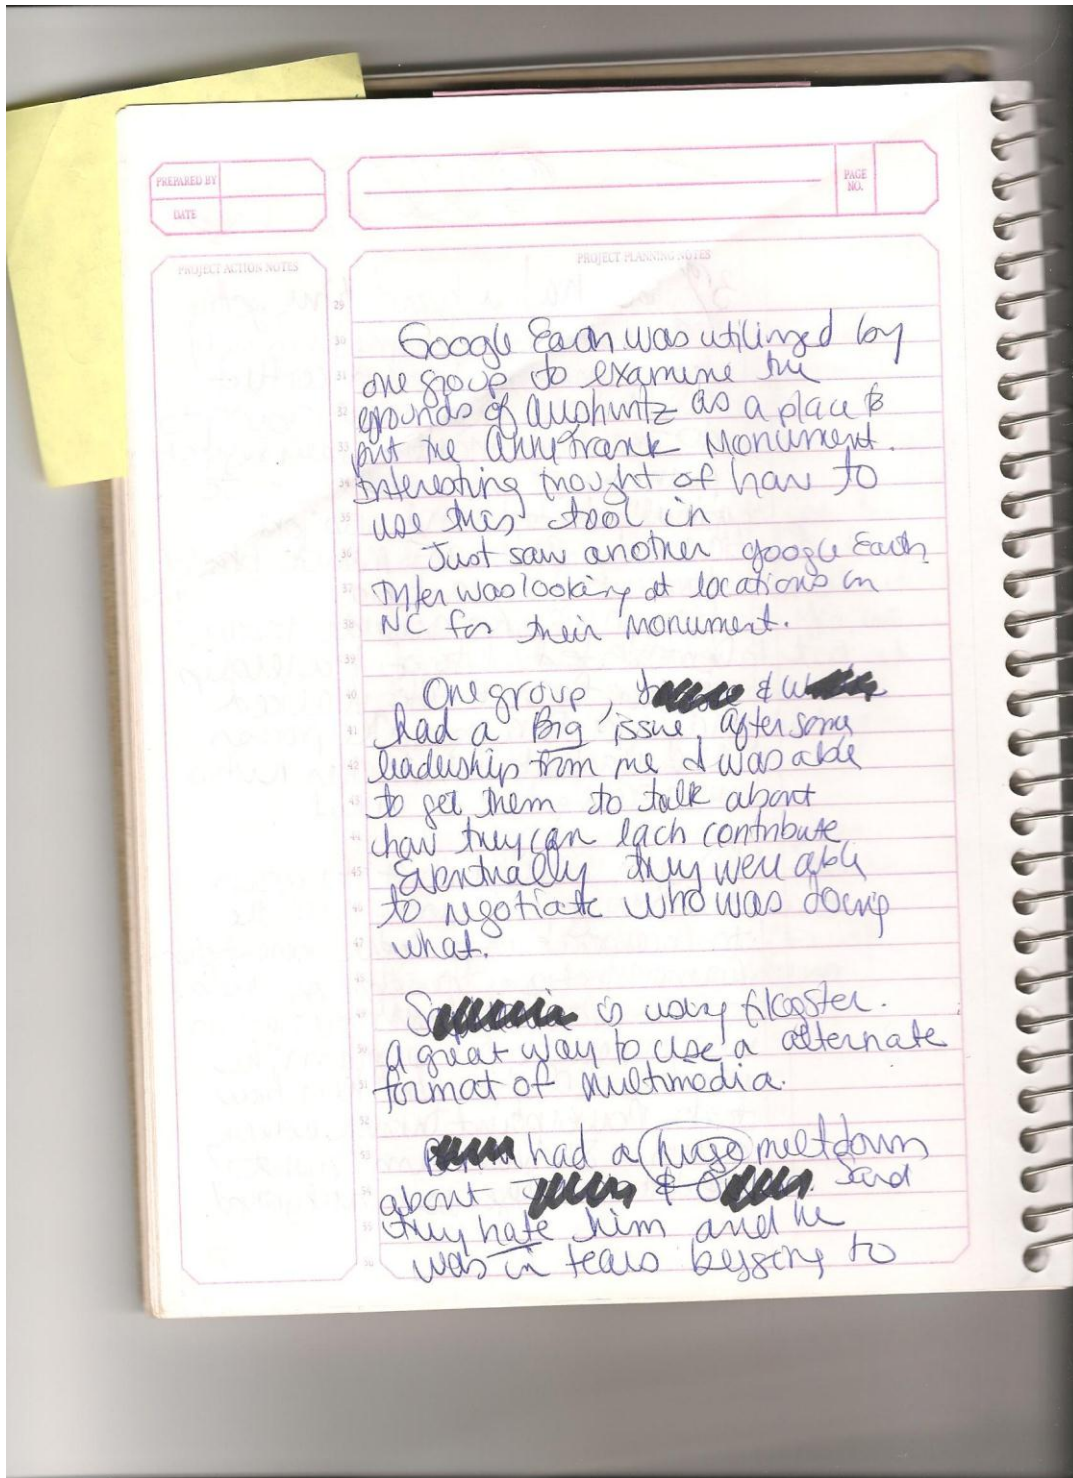 PREPARED BY
DATE
PAGE
NO.
PROJECT ACTION NOTES
PROJECT PLANNING NOTES
Google Earth was utilized by
one group to examine the
grounds of Aushwitz as a place to
put the Anne Frank Monument.
Interesting thought of how to
use this tool in
Just saw another google Earth
was looking at locations in
NC for their Monument.
One group, & W
had a Big issue after some
leadership from me I was able
to get them to talk about
how they can each contribute
Eventually they were able
to negotiate who was doing
what.
is using Glogster.
A great way to use a alternate
format of multimedia.
had a huge meltdown
about & said
they hate him and he
was in tears begging to